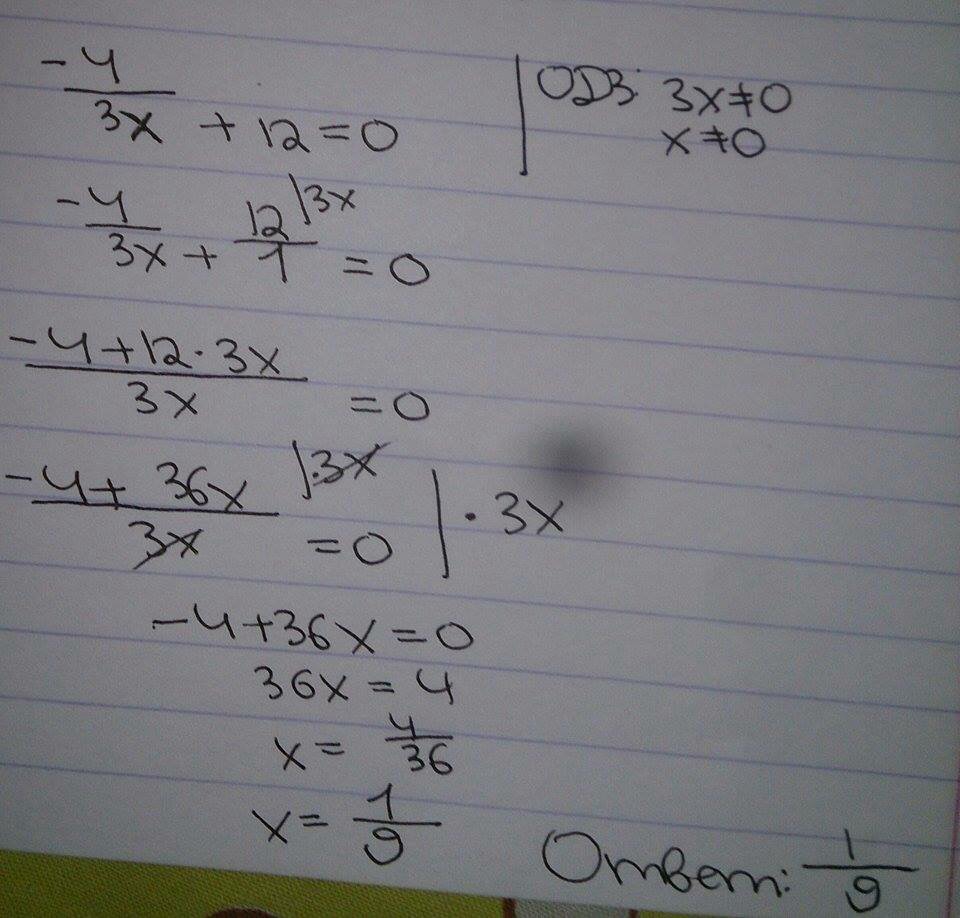 -4/3x + 12 = 0 | ОДЗ: 3x ≠ 0
x ≠ 0
-4/3x + 12/1 |3x = 0
-4+12·3x/3x = 0
-4+36x/3x |·3x = 0 | · 3x
-4+36x=0
36x = 4
x = 4/36
x = 1/9
Ответ: 1/9